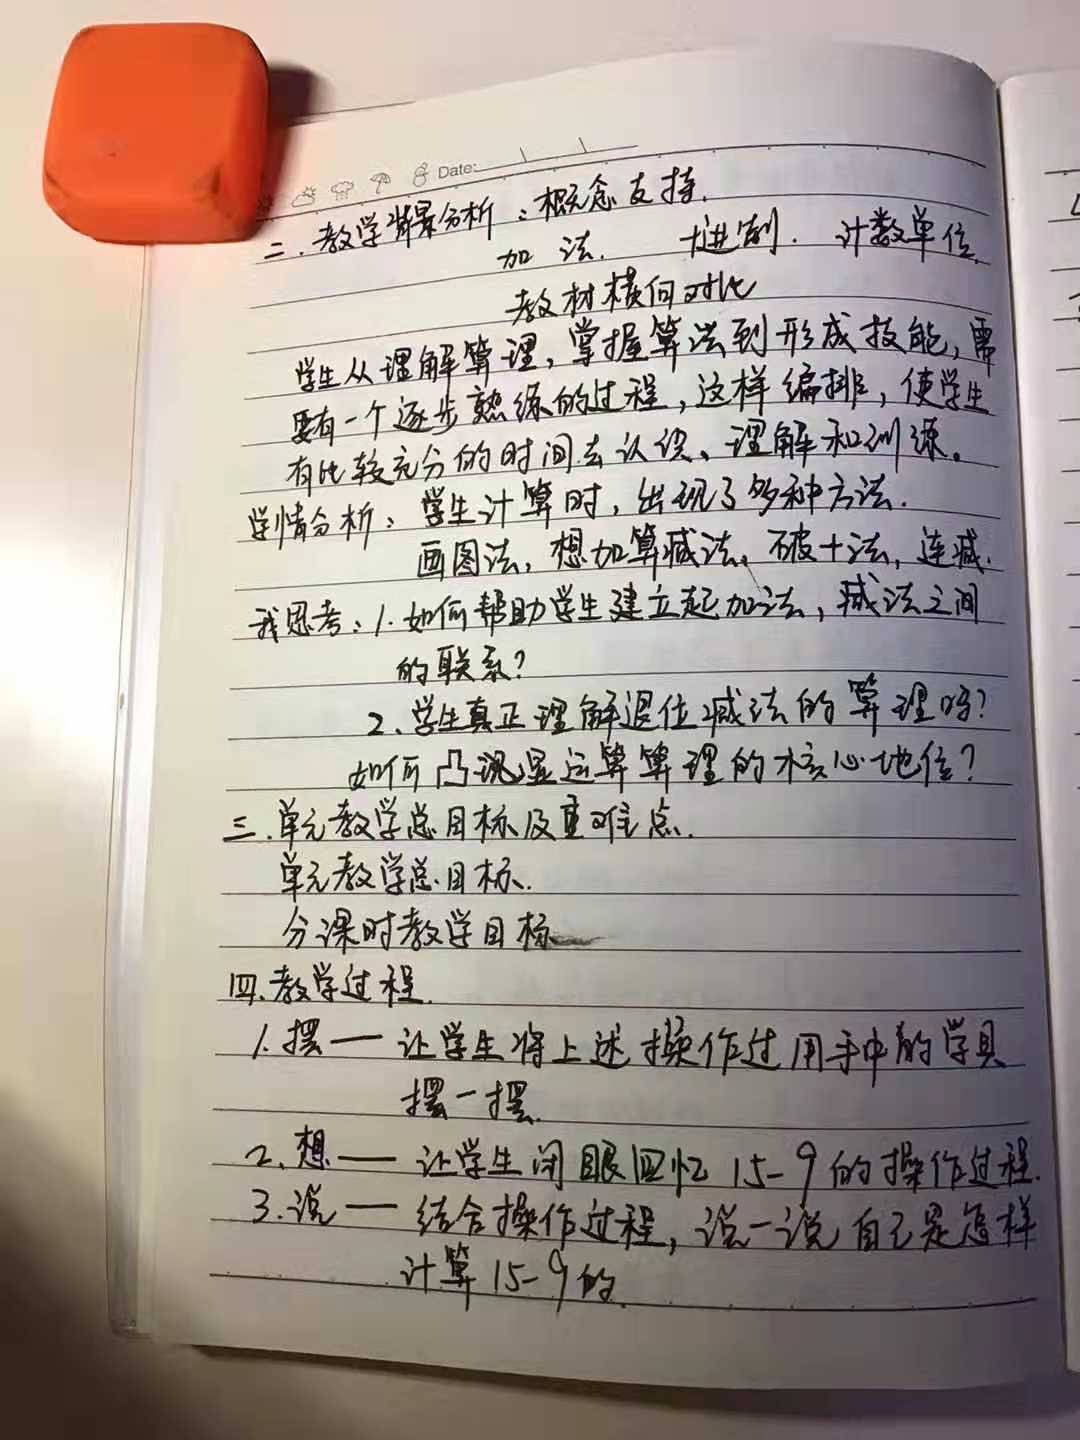 Date:
二.教学背景分析:概念支持.
加法. 十进制. 计数单位.
教材横向对比
学生从理解算理,掌握算法到形成技能,需
要有一个逐步熟练的过程,这样编排,使学生
有比较充分的时间去认识、理解和训练。
学情分析:学生计算时,出现了多种方法.
画图法,想加算减法、破十法,连减.
我思考:1.如何帮助学生建立起加法,减法之间
的联系?
2.学生真正理解退位减法的算理吗?
如何凸现显运算算理的核心地位?
三.单元教学总目标及重难点.
单元教学总目标.
分课时教学目标
四.教学过程.
1.摆一让学生将上述操作过用手中的学具
摆一摆.
2.想——让学生闭眼回忆15-9的操作过程.
3.说——结合操作过程,说一说自己是怎样
计算15-9的.